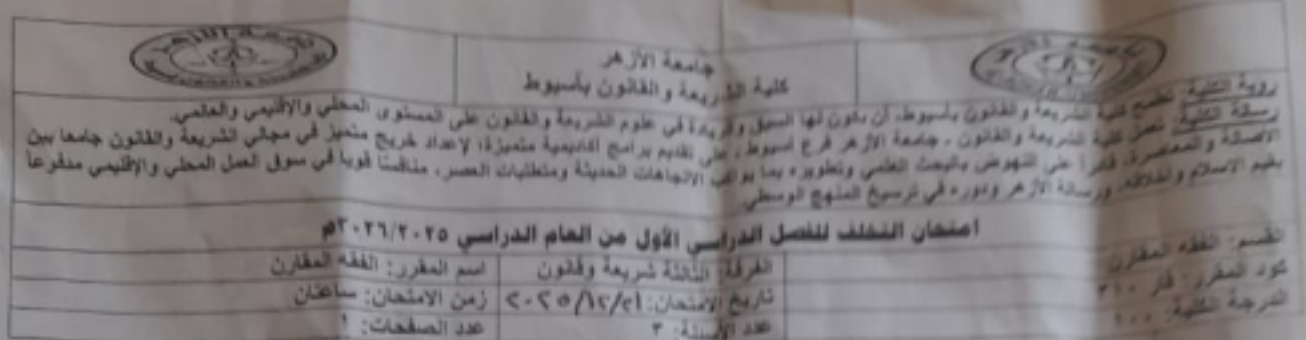 جامعة الأزهر
كلية الشريعة والقانون بأسيوط
رؤية الكلية: تطمح كلية الشريعة والقانون بأسيوط، أن يكون لها السبق والريادة في علوم الشريعة والقانون على المستوى المحلي والإقليمي والعالمي.
رسالة الكلية: تعمل كلية الشريعة والقانون، جامعة الأزهر فرع أسيوط، على تقديم برامج أكاديمية متميزة؛ لإعداد خريج متميز في مجالي الشريعة والقانون جامعا بين
الأصالة والمعاصرة، قادراً على النهوض بالبحث العلمي وتطويره بما يواكب الاتجاهات الحديثة ومتطلبات العصر، منافسًا قويا في سوق العمل المحلي والإقليمي مدفوعاً
بقيم الإسلام وأخلاقه، ورسالة الأزهر ودوره في ترسيخ المنهج الوسطي.
امتحان التخلف للفصل الدراسي الأول من العام الدراسي ٢٠٢٦/٢٠٢٥م
القسم: الفقه المقارن
الفرقة: الثالثة شريعة وقانون
اسم المقرر: الفقه المقارن
كود المقرر: فار ٣١٠
تاريخ الامتحان: ٢٠٢٥/١٢/٢١
زمن الامتحان: ساعتان
الدرجة الكلية: ١٠٠
عدد الأسئلة: ٣
عدد الصفحات: ١